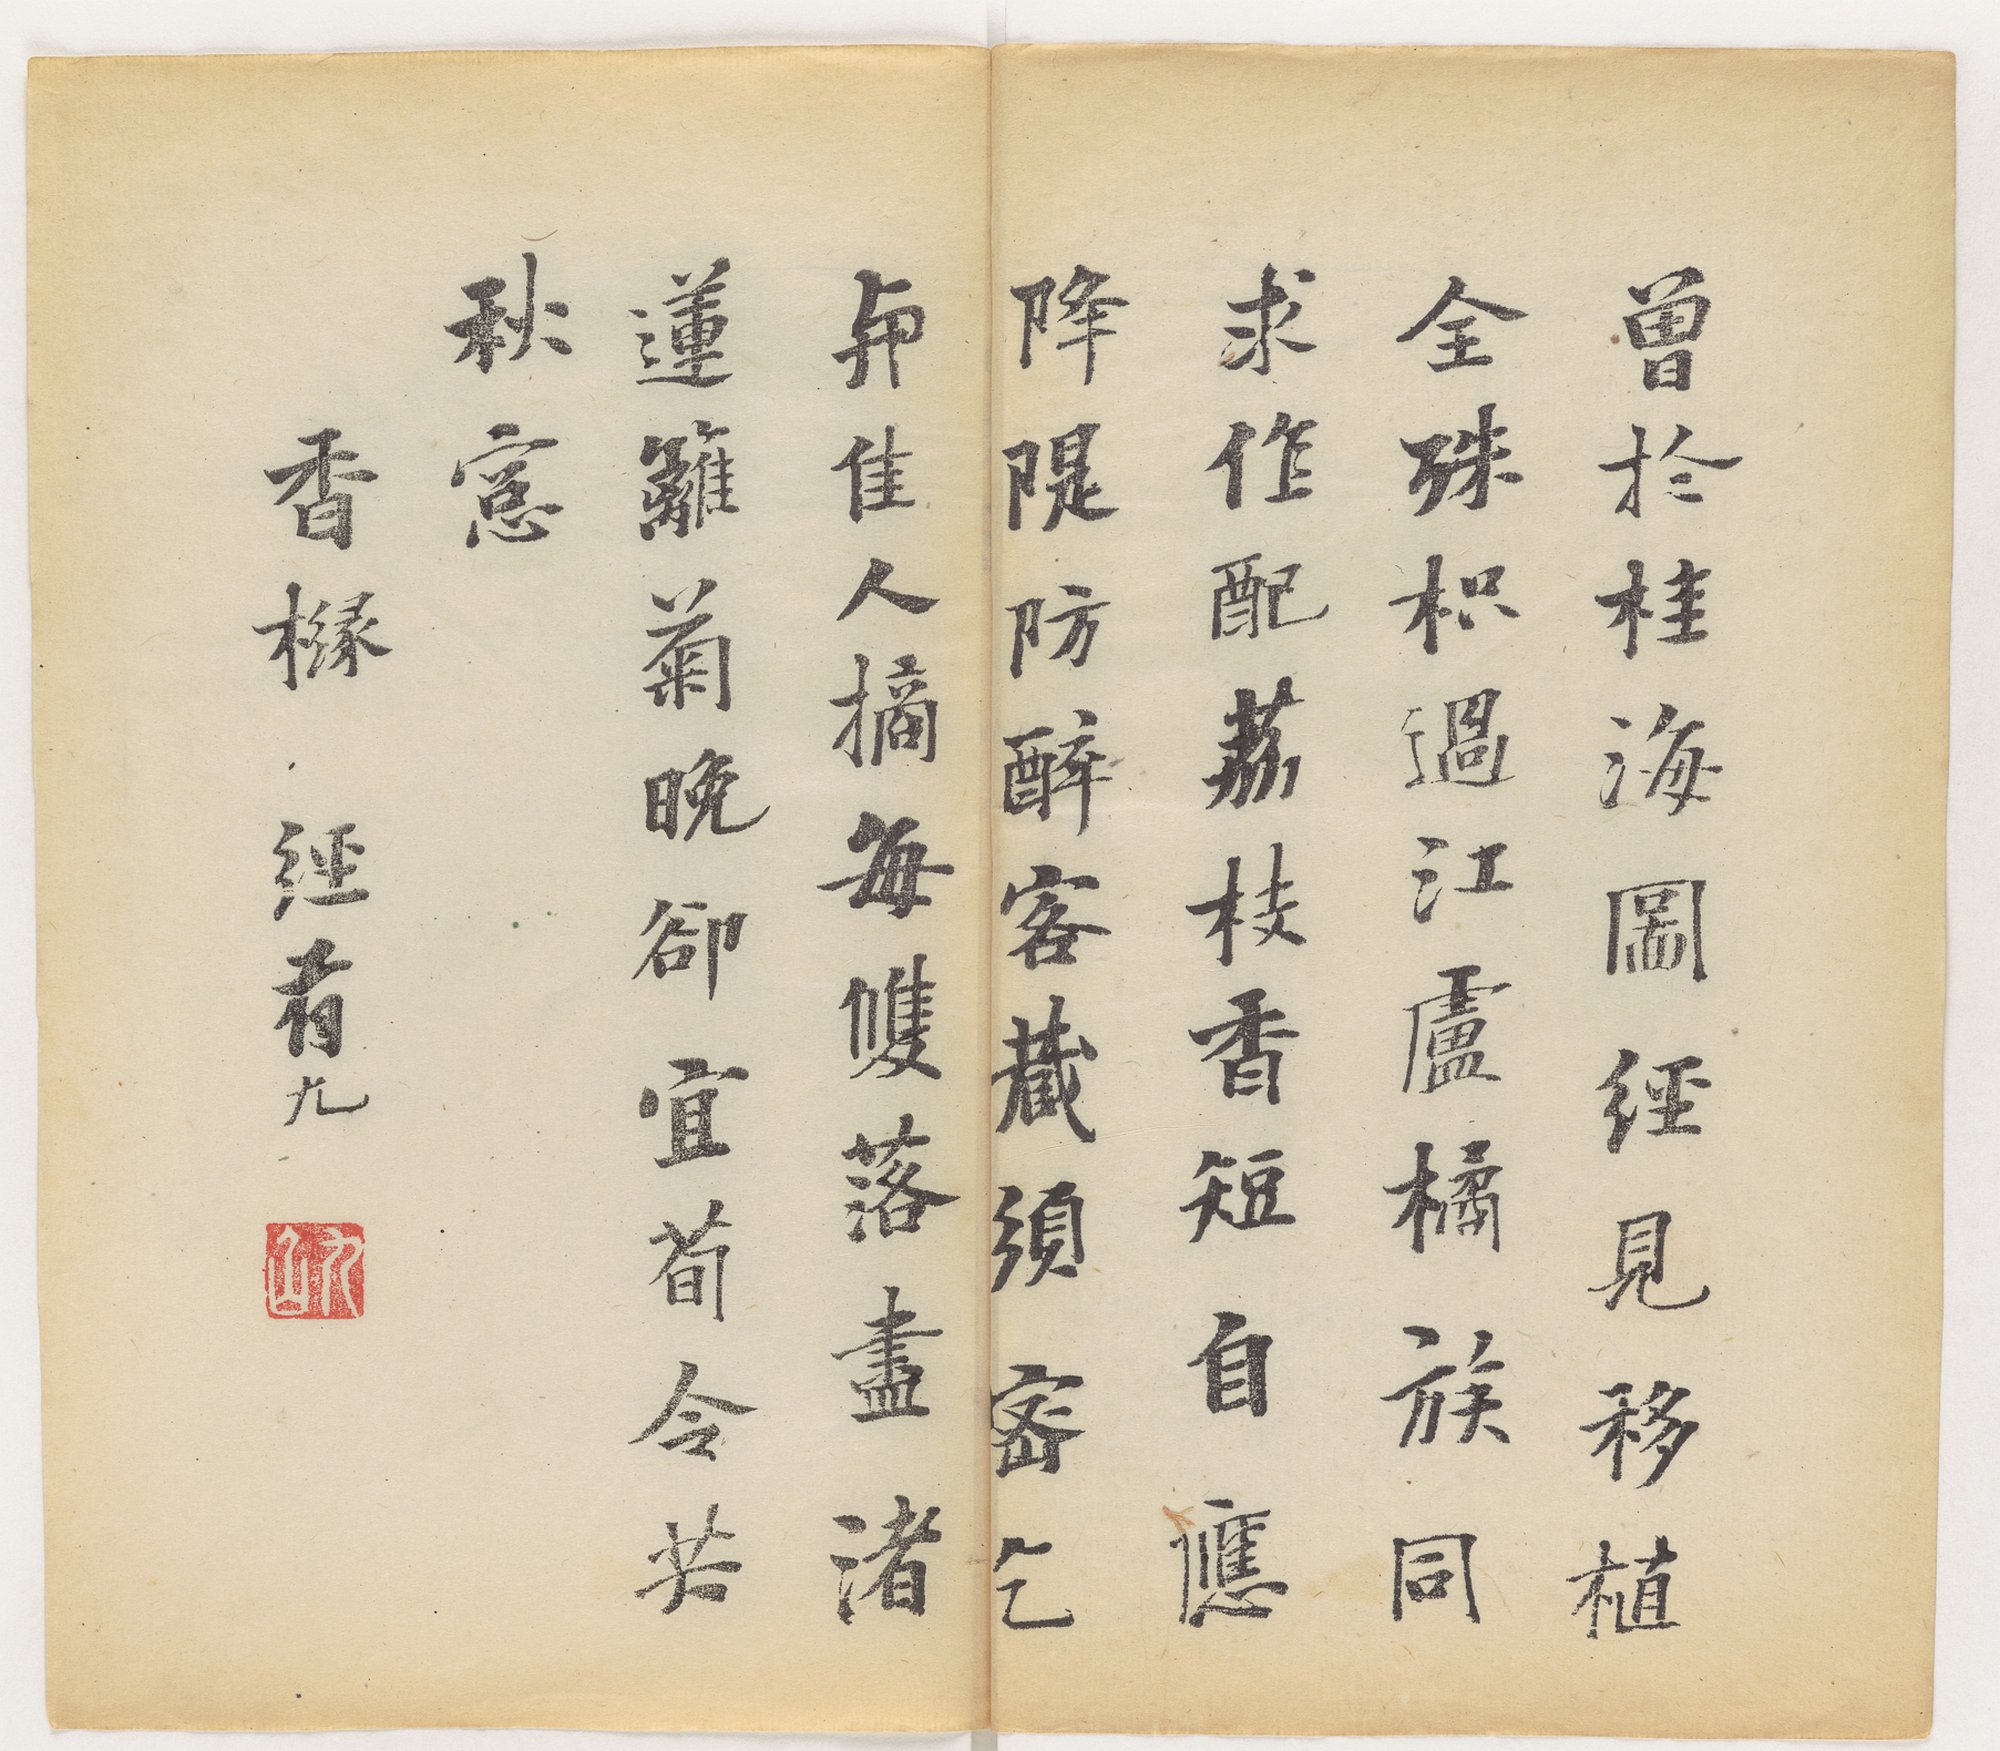 曽於桂海圖經見移植
全殊枳過江盧橘族同
求作配荔枝香短自應
降隄防醉客藏須密乞
與佳人摘每雙落盡渚
蓮籬菊晚卻宜荀令共
秋窓
香櫞 經省九